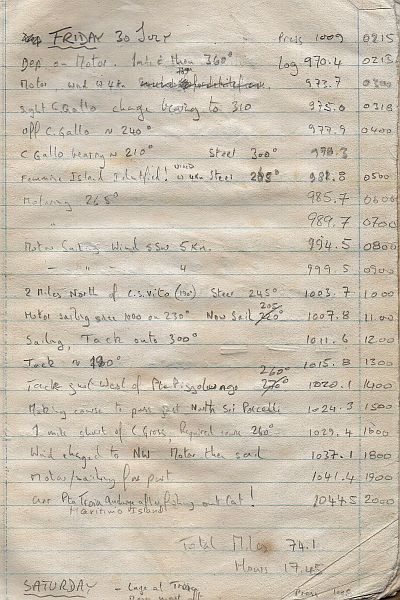 FRIDAY 30 JULY Press 1009 0215
Dep. on Motor. then 360° log 970.4 0215
Motor wind W 4 kn 973.7 0300
Sight C. Gallo change bearing to 310 975.0 0318
Off C. Gallo ≈ 240° 977.9 0400
C Gallo bearing ≈ 210° Steer 300°
Island Identified! wind W 4 kn Steer 0500
Motoring 265° 985.7 0600
" 989.7 0700
Motor Sailing Wind SSW 5 Kn. 994.5 0800
- " - " 999.5 0900
2 Miles North of C.S. Vito Steer 245° 1003.7 1000
Motor sailing since 1000 on 230° Now Sail 205 220° 1007.8 1100
Sailing, Tack onto 300° 1011.6 1200
Tack ≈ 1015.8 1300
Tack just West of 260° 270° 1020.1 1400
Making course to pass just North 1024.3 1500
1 mile short of C Grosso, Required course 260° 1029.4 1600
Wind changed to NW Motor then sail 1037.1 1800
Motor/sailing for port 1041.4 1900
Pta Troia fishing out Cat! 1044.5 2000
Maritimo Island
Total Miles 74.1
Hours 17.45
SATURDAY Press